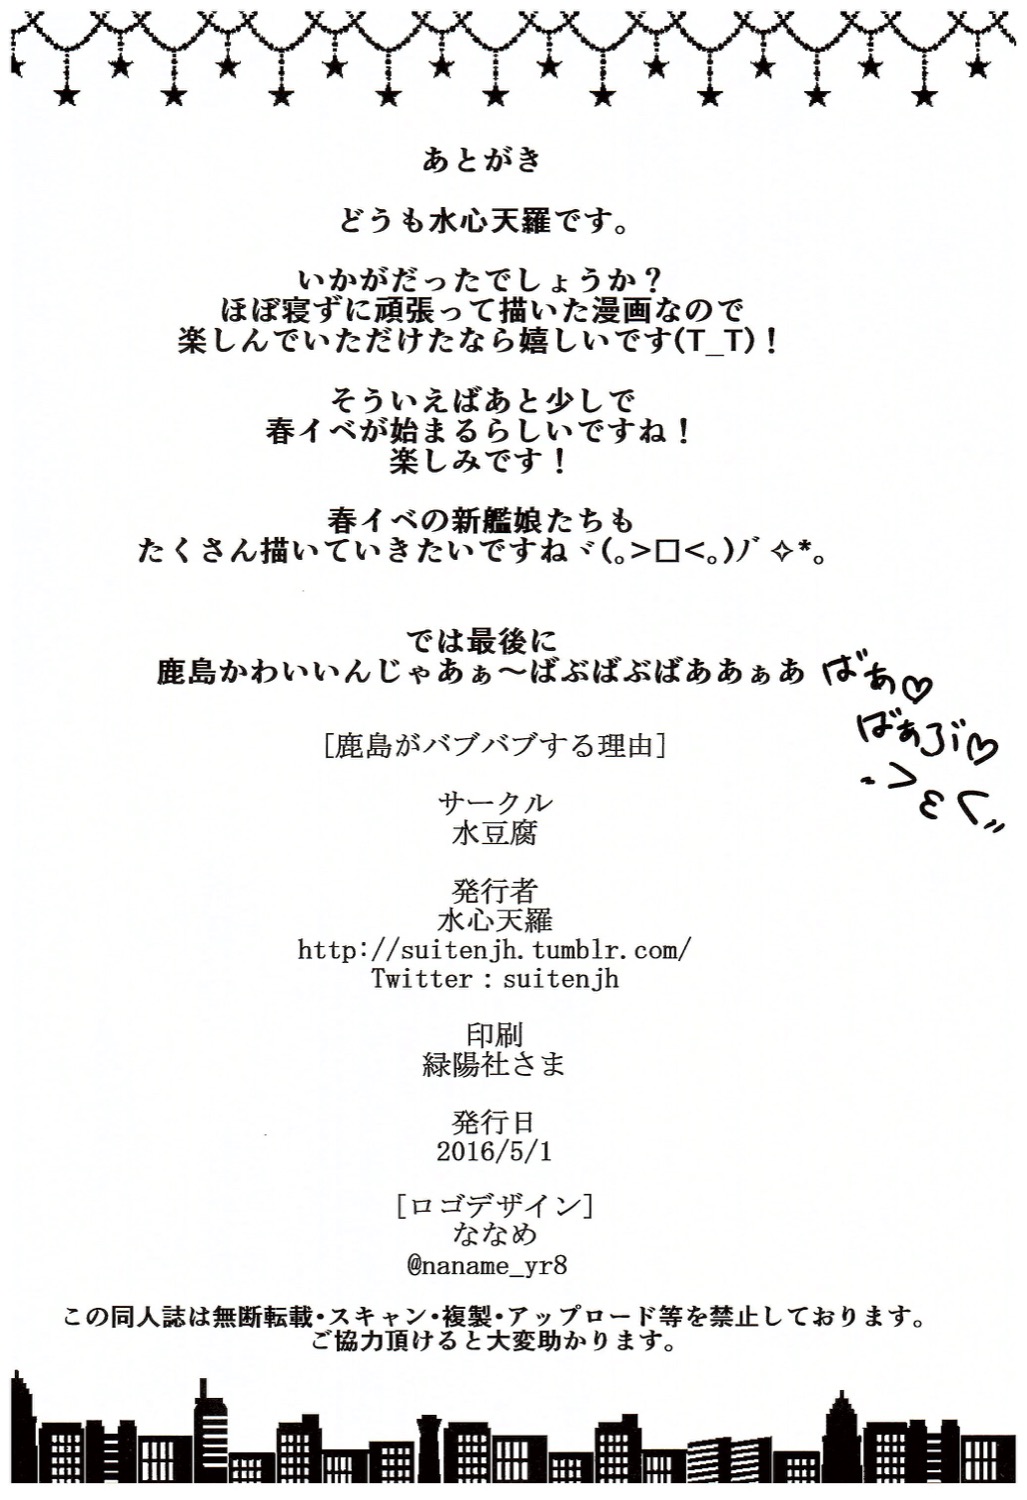 あとがき
どうも水心天羅です。
いかがだったでしょうか？
ほぼ寝ずに頑張って描いた漫画なので
楽しんでいただけたなら嬉しいです(T_T)！
そういえばあと少しで
春イベが始まるらしいですね！
楽しみです！
春イベの新艦娘たちも
たくさん描いていきたいですねヾ(｡>□<｡)ﾉﾞ✧*。
では最後に
鹿島かわいいんじゃあぁ～ばぶばぶばああぁあ
ばあ♡
ばあぶ♡
~>ε<〃
[鹿島がバブバブする理由]
サークル
水豆腐
発行者
水心天羅
http://suitenjh.tumblr.com/
Twitter：suitenjh
印刷
緑陽社さま
発行日
2016/5/1
[ロゴデザイン]
ななめ
@naname_yr8
この同人誌は無断転載・スキャン・複製・アップロード等を禁止しております。
ご協力頂けると大変助かります。